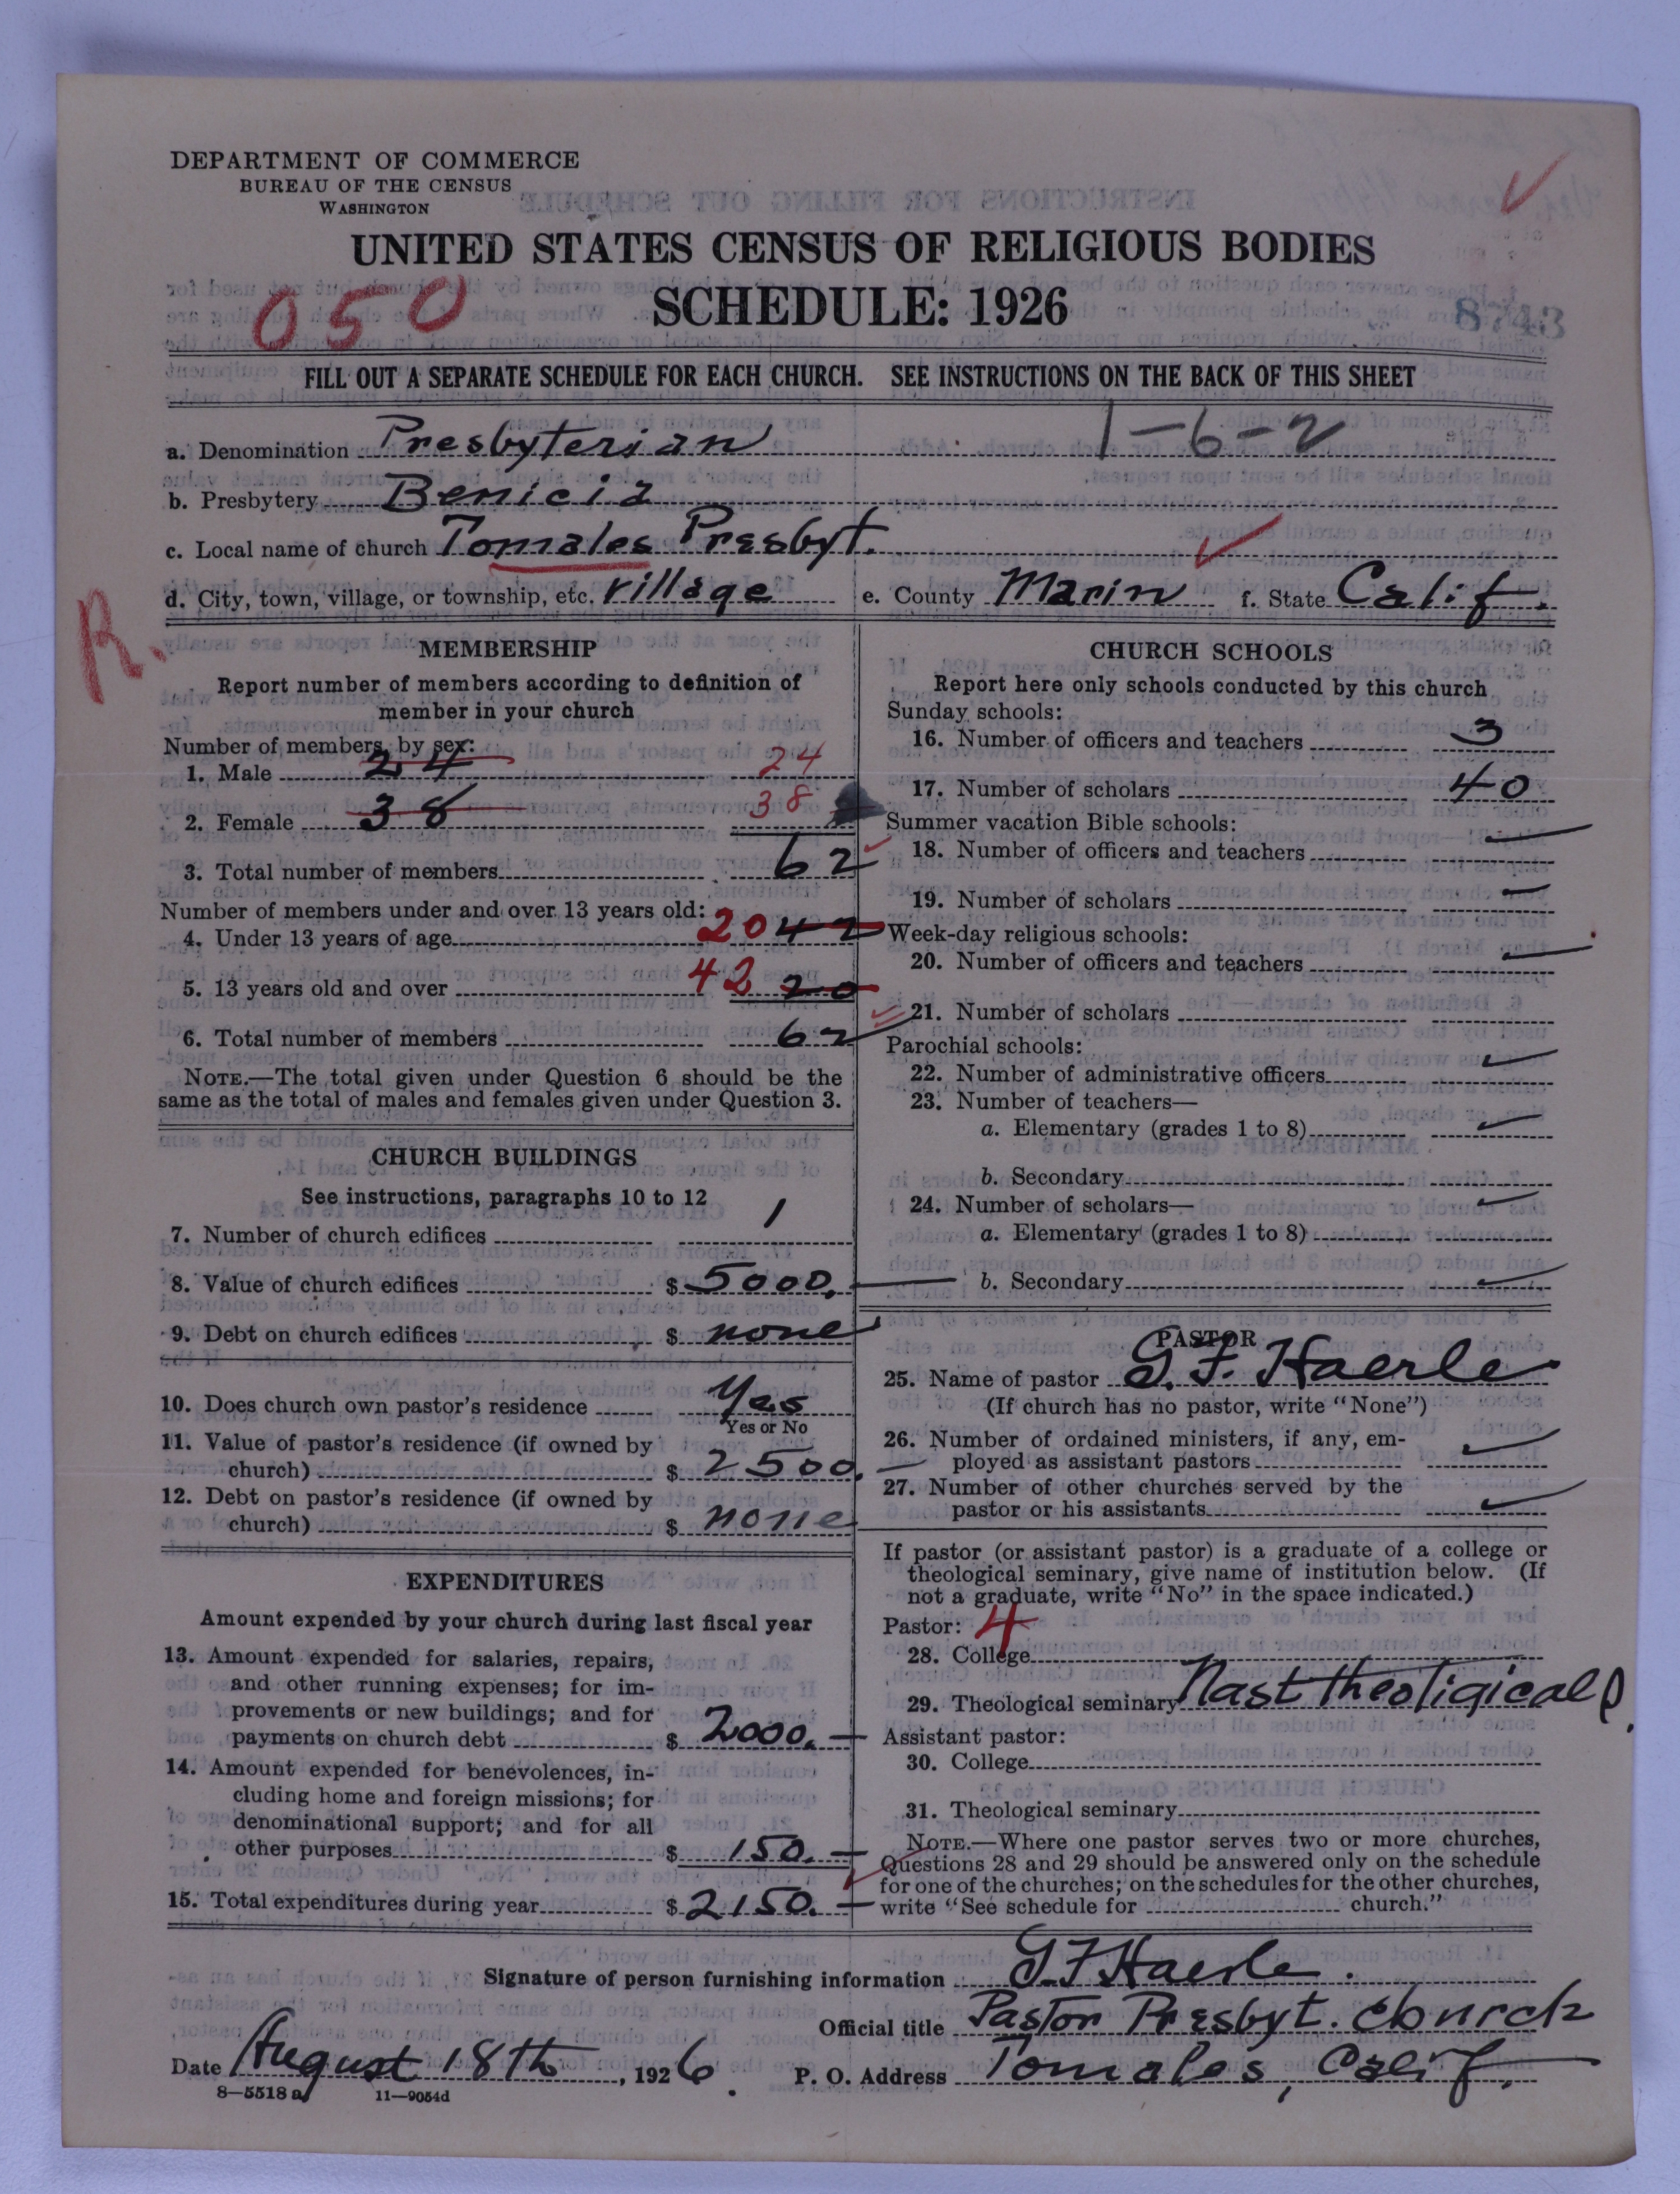 DEPARTMENT OF COMMERCE
BUREAU OF THE CENSUS
WASHINGTON
UNITED STATES CENSUS OF RELIGIOUS BODIES
050
SCHEDULE: 1926
8743
FILL OUT A SEPARATE SCHEDULE FOR EACH CHURCH. SEE INSTRUCTIONS ON THE BACK OF THIS SHEET
1-6-2
a. Denomination Presbyterian
b. Presbytery Benicia
c. Local name of church Tomales Presbyt.
d. City, town, village, or township, etc. village e. County Marin f. State Calif.
R.
MEMBERSHIP
Report number of members according to definition of
member in your church
Number of members, by sex:
1. Male 24 24
2. Female 38 38
3. Total number of members 62
Number of members under and over 13 years old:
4. Under 13 years of age 20 42
5. 13 years old and over 42 20
6. Total number of members 62
NOTE.—The total given under Question 6 should be the
same as the total of males and females given under Question 3.
CHURCH BUILDINGS
See instructions, paragraphs 10 to 12
7. Number of church edifices 1
8. Value of church edifices $ 5000.—
9. Debt on church edifices $ none
10. Does church own pastor's residence Yes
Yes or No
11. Value of pastor's residence (if owned by
church) $ 2500.—
12. Debt on pastor's residence (if owned by
church) $ none
EXPENDITURES
Amount expended by your church during last fiscal year
13. Amount expended for salaries, repairs,
and other running expenses; for im-
provements or new buildings; and for
payments on church debt $ 2000.—
14. Amount expended for benevolences, in-
cluding home and foreign missions; for
denominational support; and for all
other purposes $ 150.—
15. Total expenditures during year $ 2150.—
CHURCH SCHOOLS
Report here only schools conducted by this church
Sunday schools:
16. Number of officers and teachers 3
17. Number of scholars 40
Summer vacation Bible schools:
18. Number of officers and teachers —
19. Number of scholars —
Week-day religious schools:
20. Number of officers and teachers —
21. Number of scholars
Parochial schools:
22. Number of administrative officers
23. Number of teachers—
a. Elementary (grades 1 to 8)
b. Secondary
24. Number of scholars—
a. Elementary (grades 1 to 8)
b. Secondary
PASTOR
25. Name of pastor G. F. Haerle
(If church has no pastor, write "None")
26. Number of ordained ministers, if any, em-
ployed as assistant pastors
27. Number of other churches served by the
pastor or his assistants
If pastor (or assistant pastor) is a graduate of a college or
theological seminary, give name of institution below. (If
not a graduate, write "No" in the space indicated.)
Pastor: 4
28. College
29. Theological seminary Nast theoligical
Assistant pastor:
30. College
31. Theological seminary
NOTE.—Where one pastor serves two or more churches,
Questions 28 and 29 should be answered only on the schedule
for one of the churches; on the schedules for the other churches,
write "See schedule for church."
Signature of person furnishing information G. F. Haerle.
Official title Pastor Presbyt. church
Date August 18th, 1926. P. O. Address Tomales, Calif.
8—5518 a 11—9054d